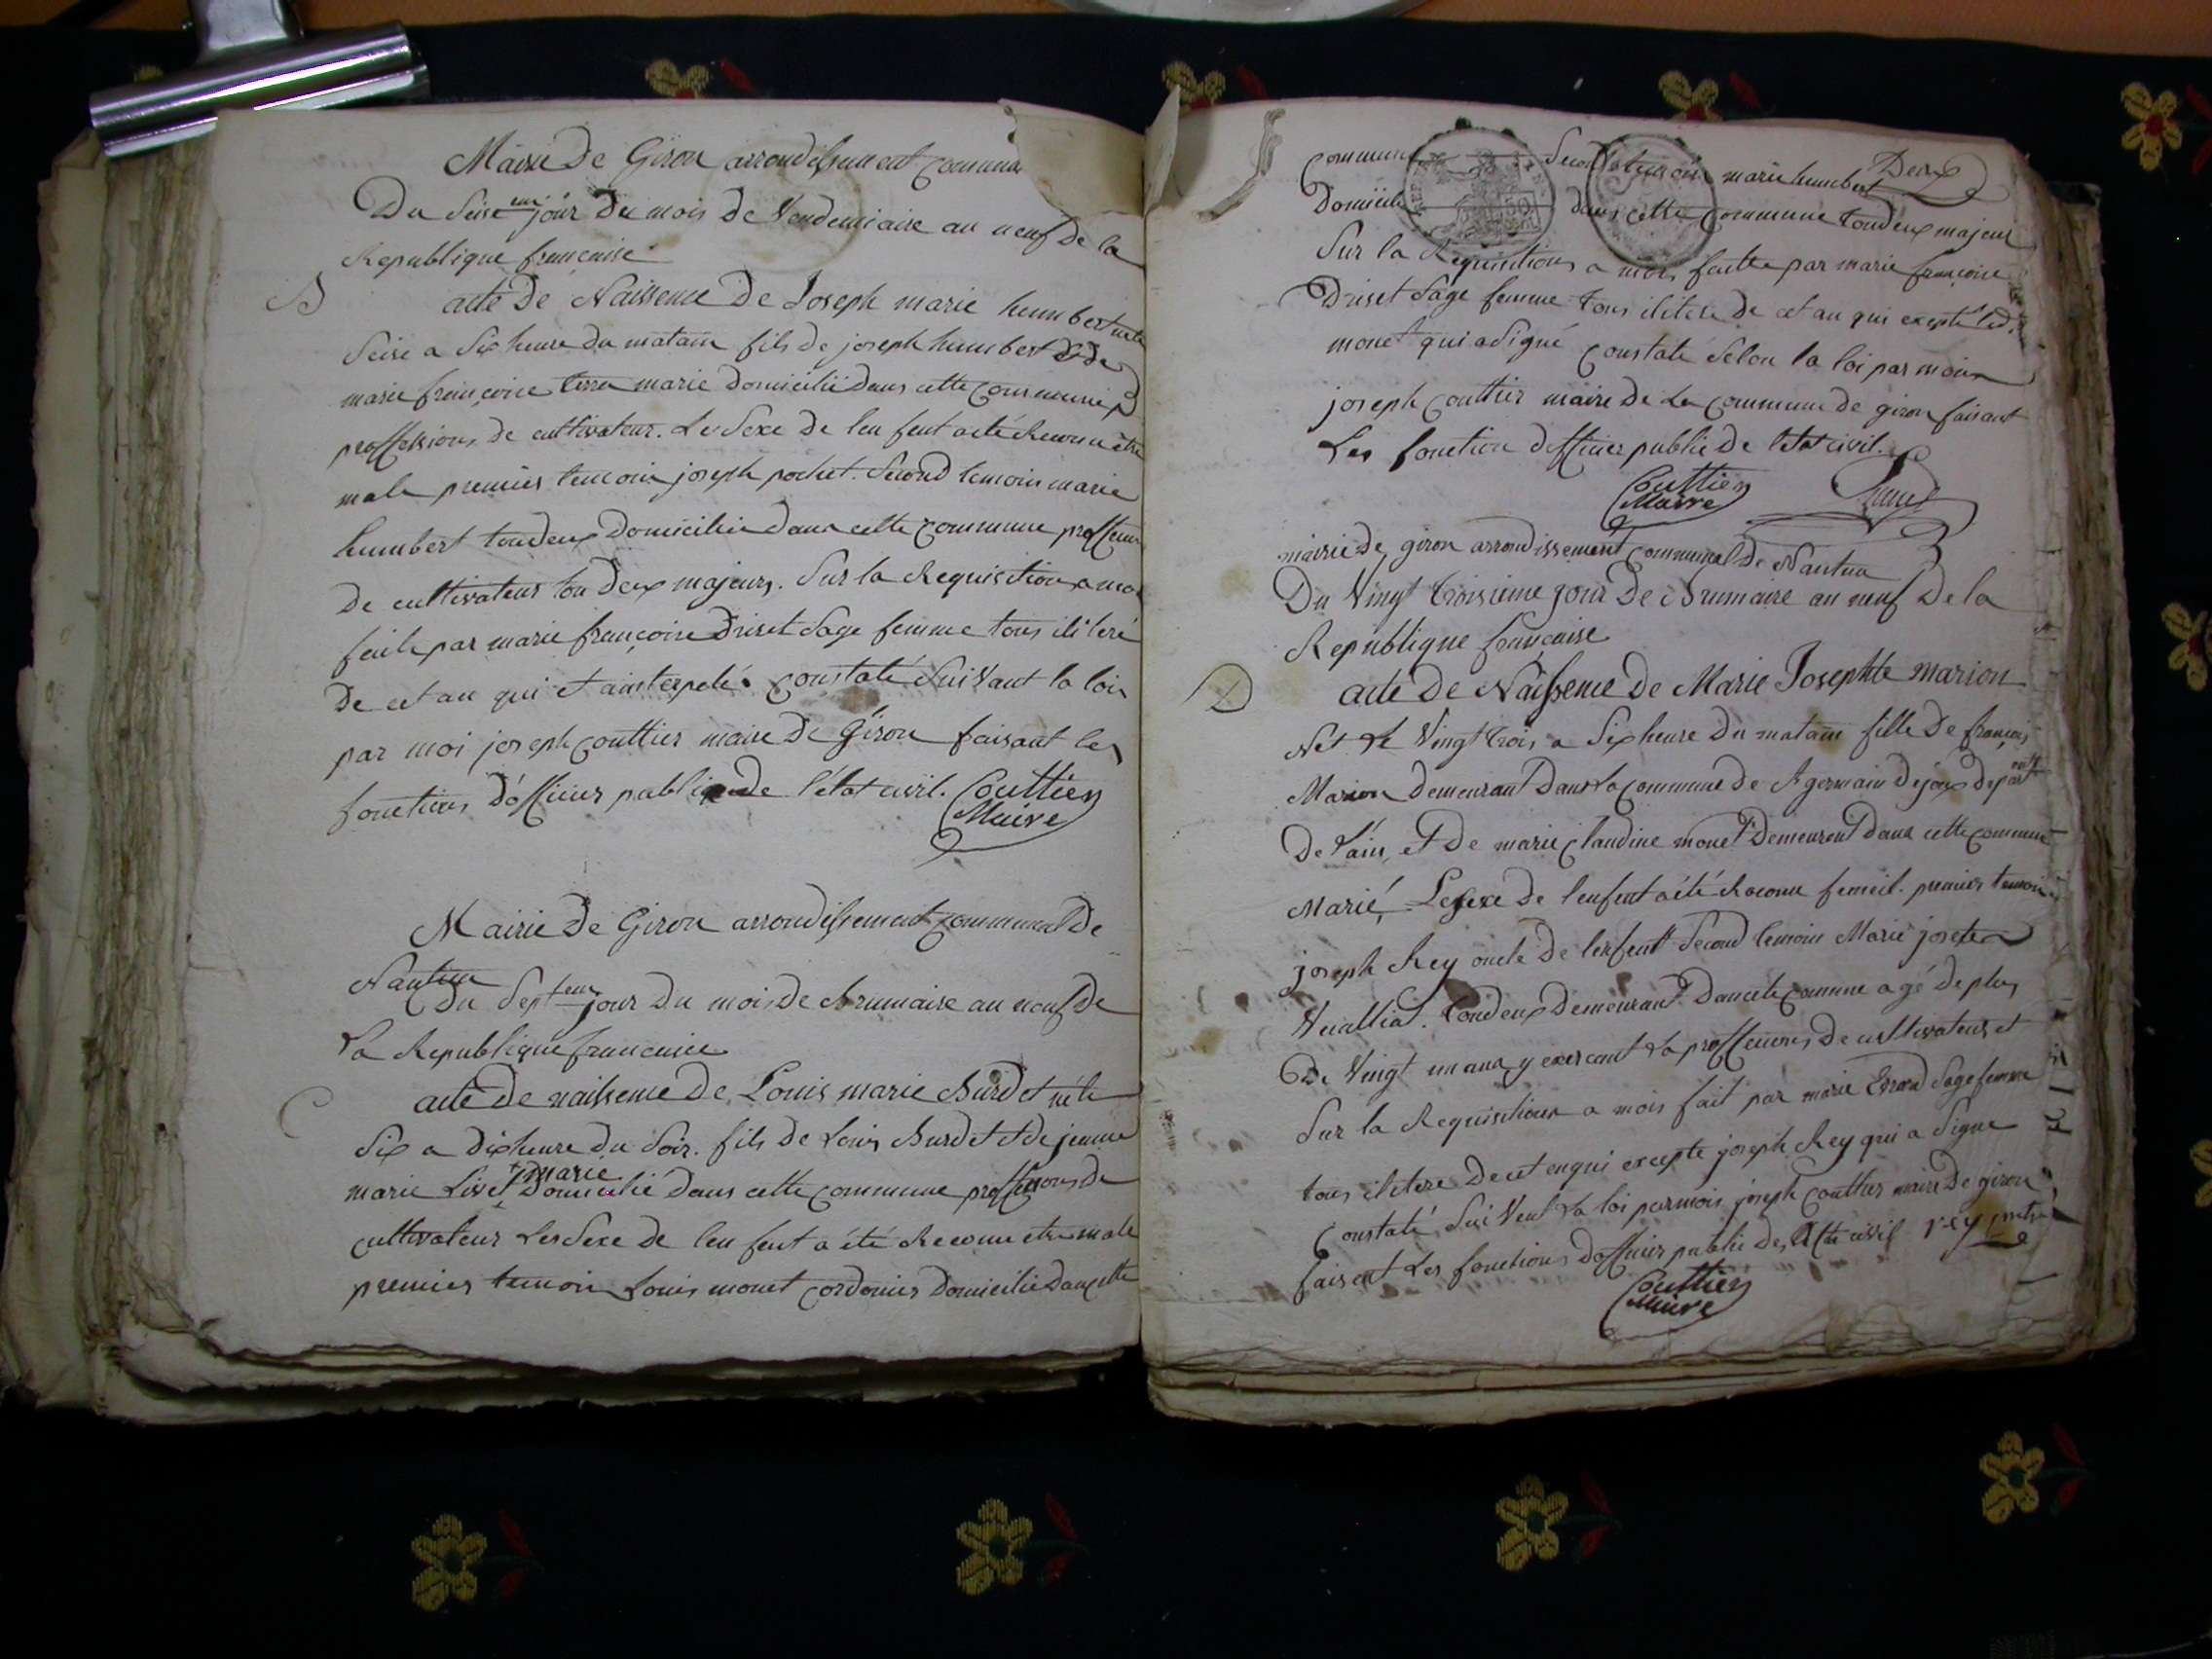 Mairie De Giron arrondissement commun
Du Seise eme jour Du mois de Vendemiaire an neuf De la
Republique francaise
B
acte De Naissence De Joseph marie humbert né le
Seise a Six heure Du matain fils De joseph humbert & De
marie francoise marie Domicilié Dans cette commune
proffession de cultivateur. Le Sexe De lenfent a été Reconu être
male premier temoin joseph pochet. Second temoin marie
humbert toudeux Domicilié Dans cette commune
De cultivateur tou Deux majeurs. Sur la Requisition a moi
faite par marie françoise Driset Sage femme tous ilitere
De cet an qui et ainterpelé. Constaté Suivant la loi
par moi joseph Couttier maire De Giron faisant les
fonctions D'officier public De l'état civil. Couttier
Maire
Mairie De Giron arrondissement communal De
Nantua
Du Sept eme jour Du mois De Brumaire an neuf De
La Republique francaise
C
acte De naissence De Louis marie Burdet né le
Six a Dix heure Du Soir. fils De Louis Burdet et De jeanne
marie Livet marie Domicilié Dans cette commune proffessions De
cultivateur Le Sexe De lenfent a été Reconu etre male
premier temoin Louis monet cordonier Domicilié Dans cette
Deux
commune Second temoin marie humbert
Domicilié dans cette commune toudeux majeur
Sur la Requisitions a mois faitte par marie francoise
Driset Sage femme tous ilitere De cet an qui excepté led.
monet qui a Signé Constaté Selon la loi par moi
joseph Couttier maire De La commune De giron faisant
Les fonction D'officier public De letat civil.
Couttier
Maire
mairie De giron arrondissement communal De Nantua
Du Vingt troisieme jour De Brumaire an neuf De la
Republique francaise
D
acte De Naissence De Marie Josephte marion
Née Le Vingt trois a Six heure Du matain fille De françois
Marion Demeurant Dans La commune De St germain De joux Depart ent
De L'ain, et De marie Claudine monet Demeurent Dans cette commune
Marié, Le Sexe De lenfent a été Reconu femeil. premier temoin
joseph Rey oncle De lenfent Second temoin Marie josete
Vuallia. toudeux Demeurant Dans cete comune agé De plus
De Vingt un ans y exercant La proffession De cultivateur et
Sur la Requisition a mois fait par marie Sage femme
tous ilitere De cet en qui excepte joseph Rey qui a Signe
Constaté Suivent La loi par mois joseph Couttier maire De giron
faisent Les fonctions Dofficier public De civil rey
Couttier
Maire